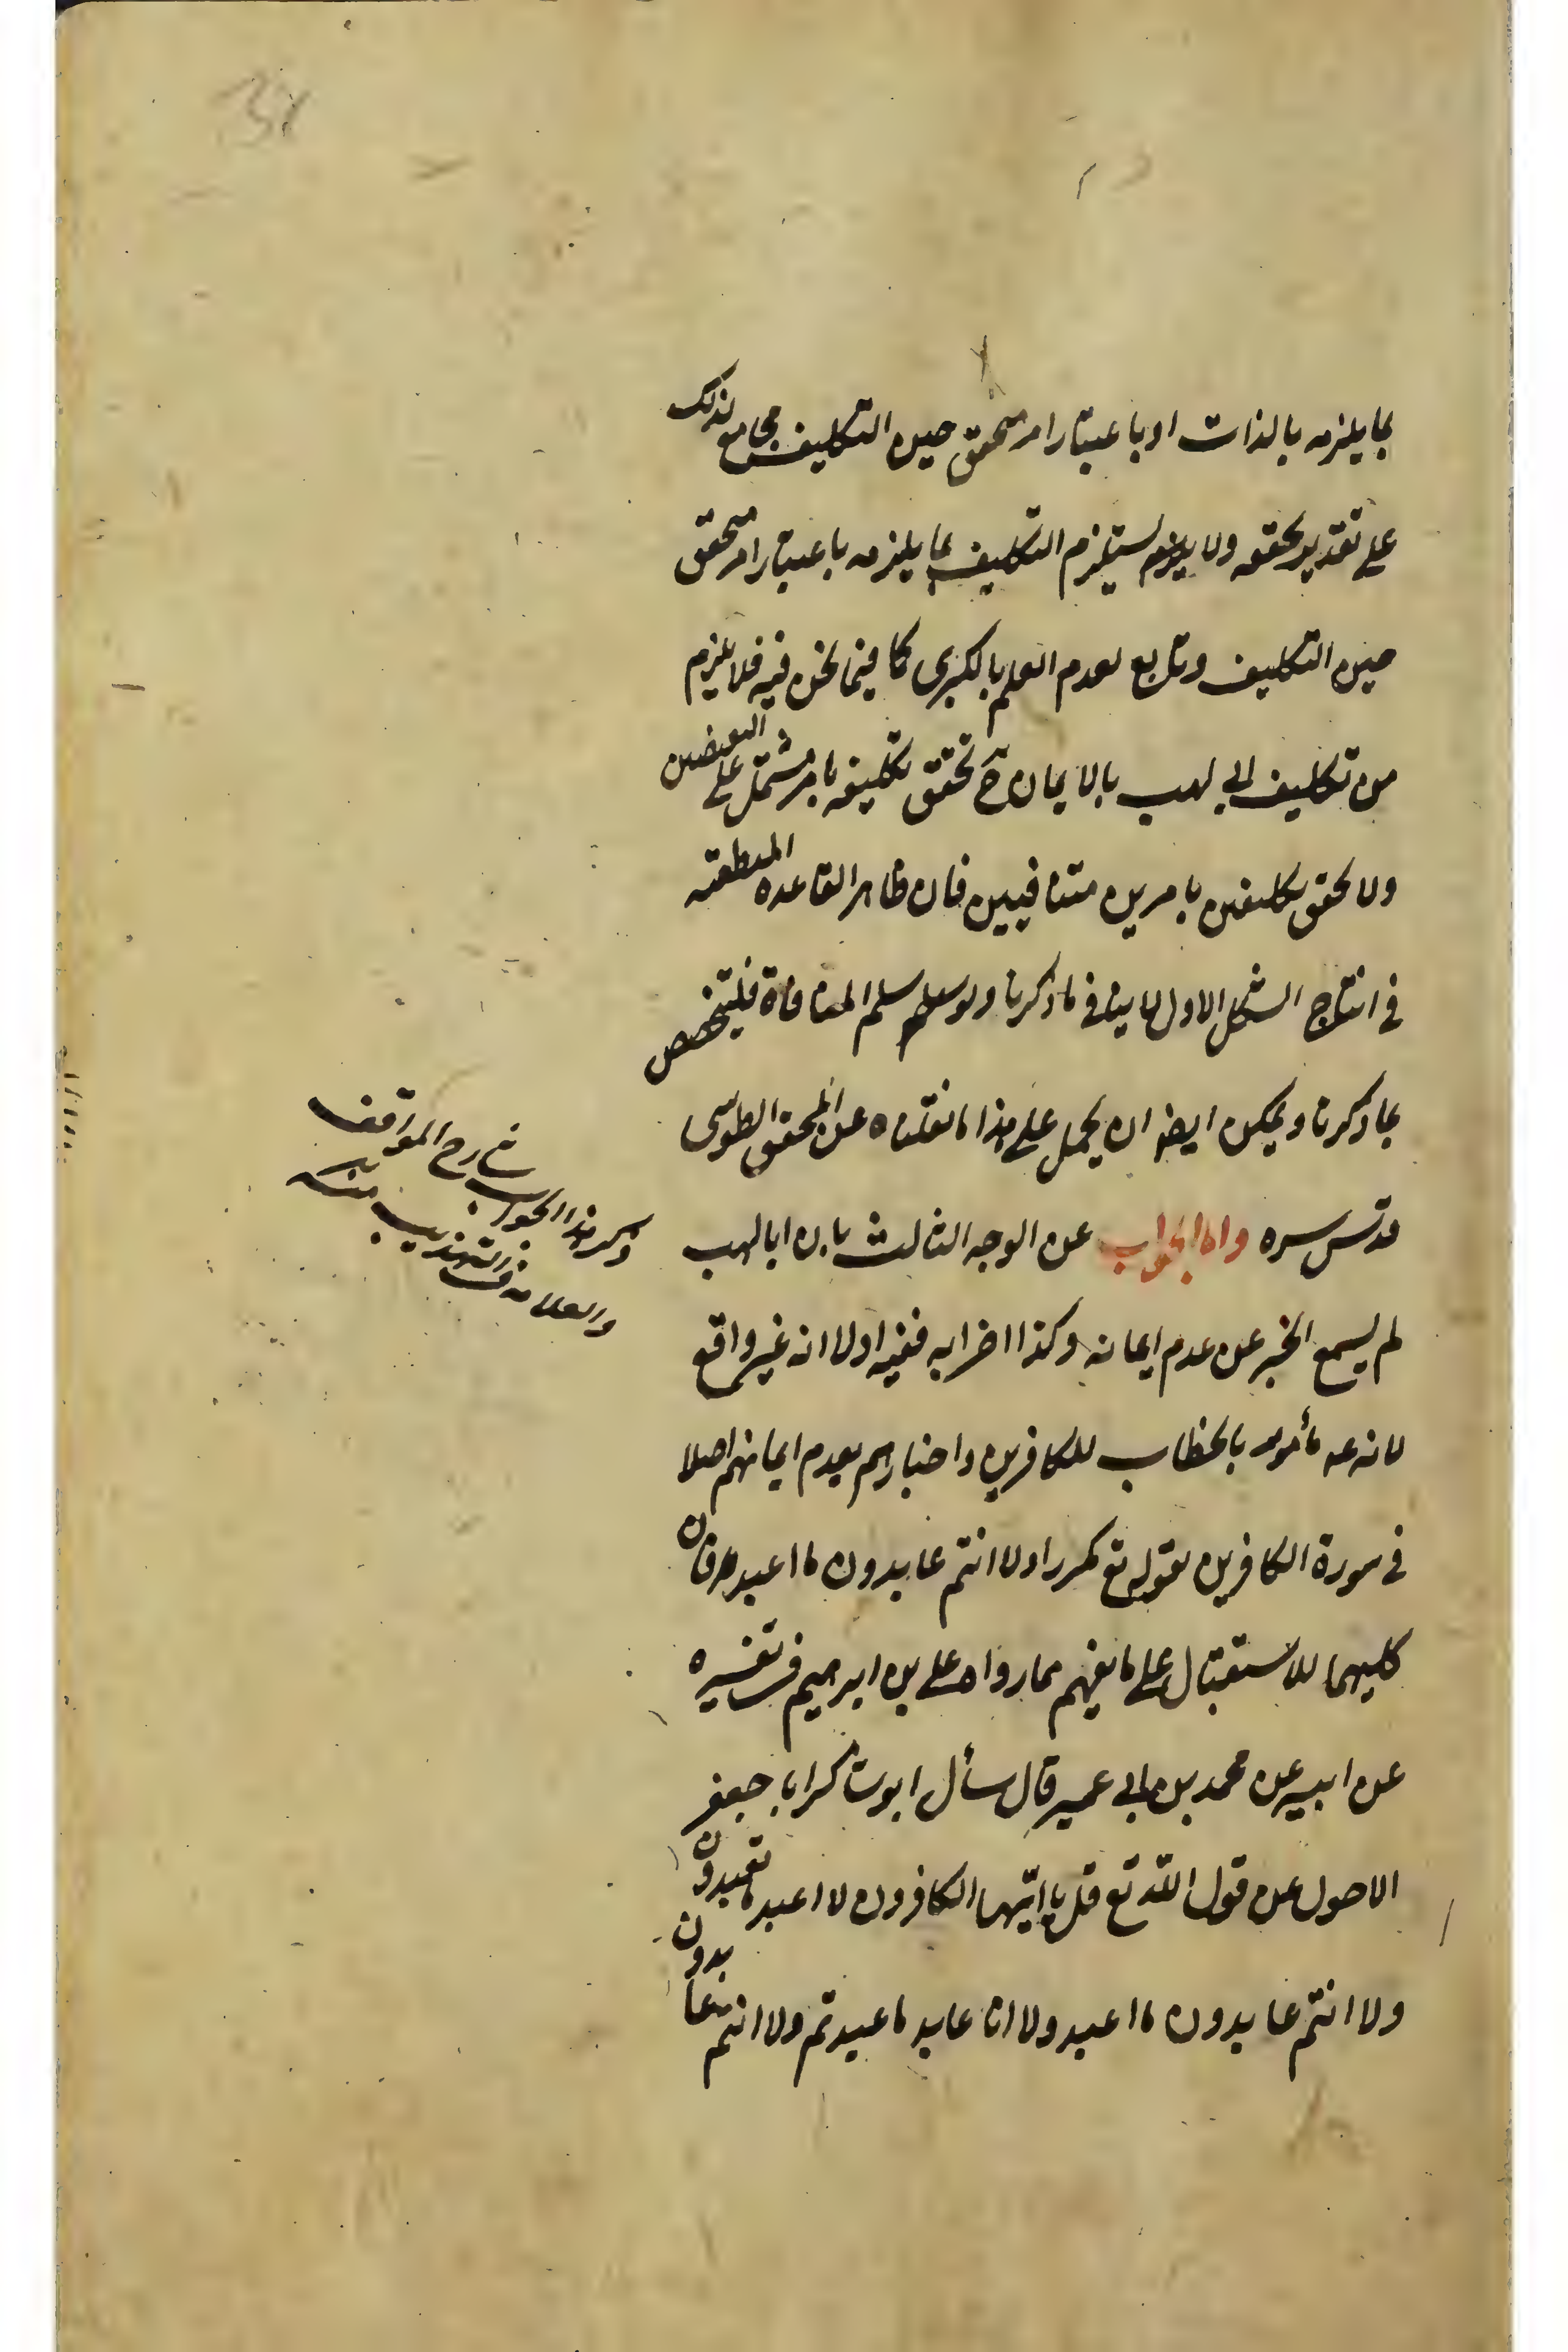 بما يلزمه بالذات او باعتبار امر متحقق حين التكليف مجامع لذلك
على تقدير تحققه ولا يستلزم التكليف بما يلزمه باعتبار امر متحقق
حين التكليف وتابع لعدم العلم بالكبرى كما فيما نحن فيه فلا يلزم
من تكليف ابي لهب بالايمان ح تحقق تكليفه بامر مشتمل على النقيضين
ولا تحقق تكليفين بامرين متنافيين فان ظاهر القاعدة المنطقية
في انتاج الشكل الاول لا ينافي ما ذكرنا ولو سلم المنافاة فليتخصص
بما ذكرنا ويمكن ايضا ان يحمل على هذا ما نقلناه عن المحقق الطوسي
قدس سره واما الجواب عن الوجه الثالث بان ابا لهب
لم يسمع الخبر عن عدم ايمانه وكذا اضرابه ففيه اولا انه غير واقع
لانه عم مأمور بالخطاب للكافرين واخبارهم بعدم ايمانهم اصلا
في سورة الكافرين بقوله تع مكررا ولا انتم عابدون ما اعبد فان
كليهما للاستقبال على ما يفهم مما رواه علي بن ابرهيم في تفسيره
عن ابيه عن محمد بن ابي عمير قال سأل ابو شاكر ابا جعفر
الاحول عن قول الله تع قل يا ايّها الكافرون لا اعبد ما تعبدون
ولا انتم عابدون ما اعبد ولا انا عابد ما عبدتم ولا انتم عابدون
ذكر هذا الجواب شارح المواقف
والعلامة في التهذيب منه